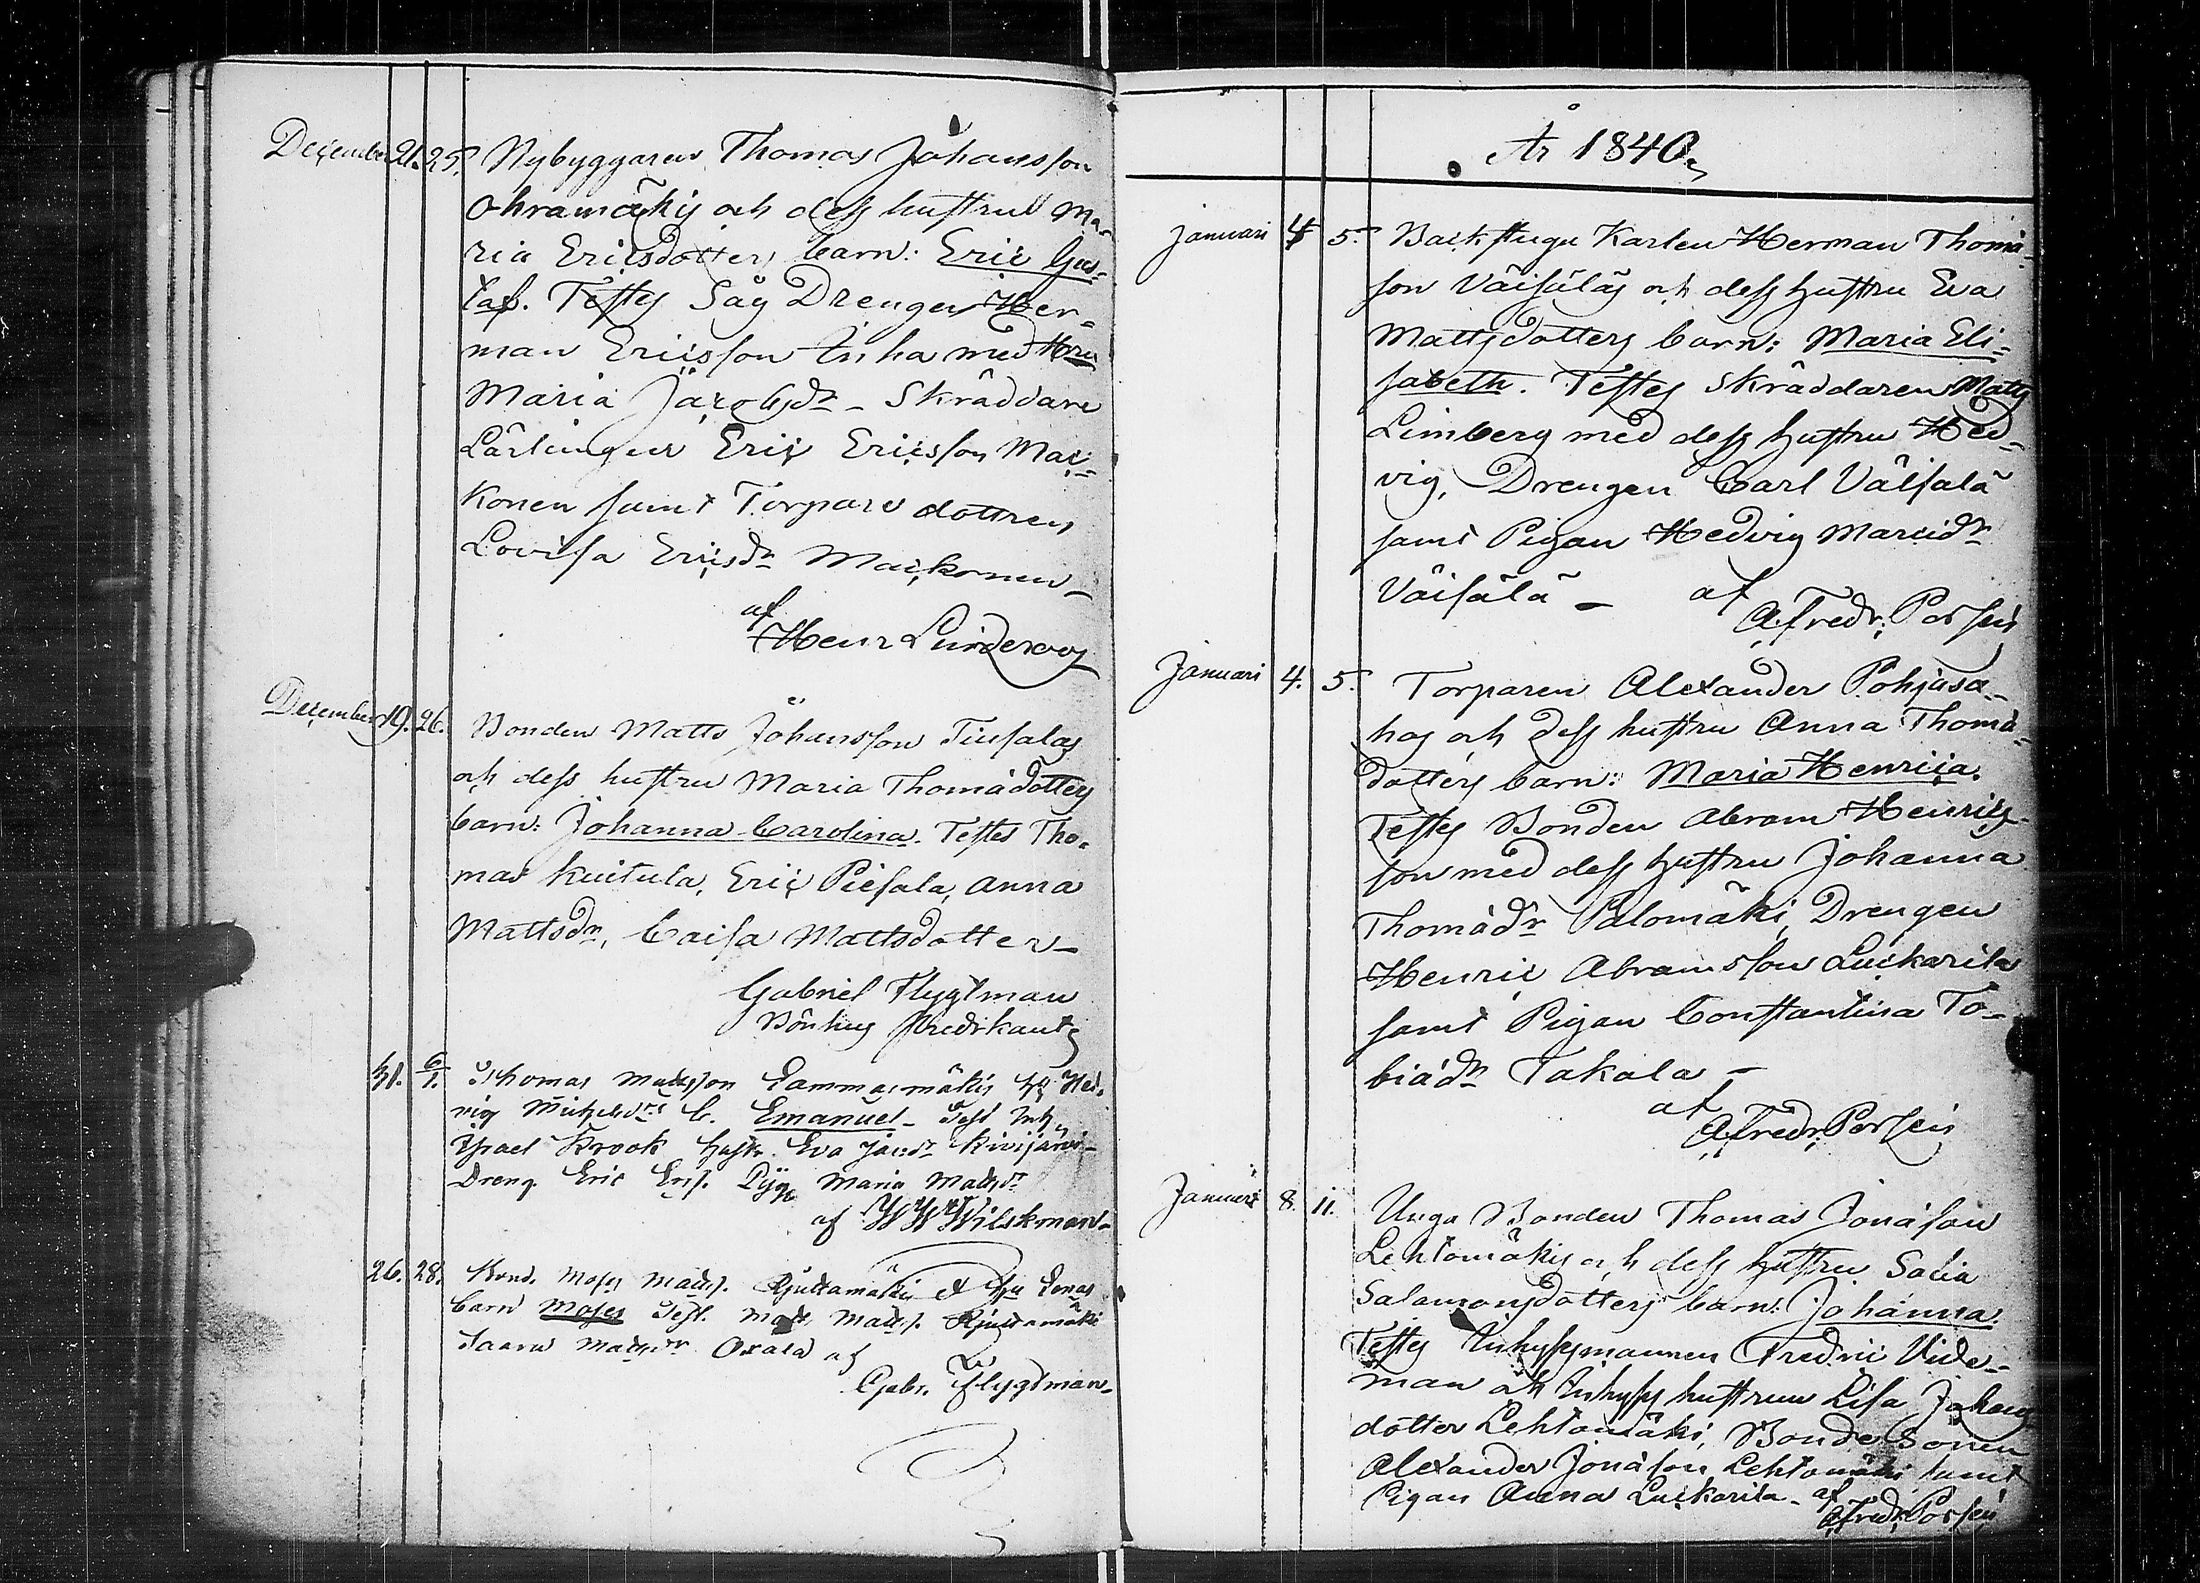 December 21. 25. Nybyggaren Thomas Johansson
Ohramäkis och dess hustrus Ma-
ria Ericsdotters barn: Eric Gus-
taf. Testes Såg Drengen Her-
man Ericsson Inha med Hru
Maria Jacobsdr – Skräddare
Lärlingen Eric Ericsson Mac-
konen samt Torpare dottren
Lovisa Ericsdr Mackonen –
af
Henr Linderoos
December 19. 26. Bonden Matts Johansson Tiusalas
och dess hustru Maria Thomædotters
barn: Johanna Carolina. Testes Tho-
mas Kuitula, Eric Piesala, Anna
Mattsdr, Caisa Mattsdotter –
Gabriel Flygtman
Bönhus Predikant
31. 6/1. Thomas Matsson Tammasmäkis h. Hed-
vig Michelsdrs b. Emanuel – Test Inh.
Israel Krook hustr. Eva Jansdr Kivijärvi –
Dreng Eric Ers. Pig. Maria Matsdr
af Wilskman –
26. 28. Bond. Moses Mats. Rjuttamäki & Hu Lenas
barn Moses Test. Mats Mats. Rjuttamäki
Saara Matsdr Oxala af
Gabr. Flygtman –
År 1840.
Januari 4 5. Backstugu Karlen Herman Thomæ-
son Väisäläs och dess hustru Eva
Mattsdotters barn: Maria Eli-
sabeth. Testes Skräddaren Matts
Limberg med dess hustru Hed-
vig, Drengen Carl Väisälä
samt Pigan Hedvig Marcidr
Väisälä – af
A. Fredr. Porsein
Januari 4. 5. Torparen Alexander Pohjasa-
hos och dess hustru Anna Thomæ-
dotters barn: Maria Henrica.
Testes Bonden Abram Henrics-
son med dess hustru Johanna
Thomædr Palomäki, Drengen
Henric Abramsson Luckarila
samt Pigan Constantina To-
biædr Takala –
af
A. Fredr. Porsein
Januari 8. 11. Unga Bonden Thomas Jonæson
Lehtomäkis och dess hustru Sofia
Salamonsdotters barn: Johanna.
Testes Inhysesmannen Fredric Vide-
man och Inhyses hustrun Lisa Johans
dotter Lehtomäki, Bonde Sonen
Alexander Jonæson Lehtomäki samt
Pigan Anna Luckarila – af
A. Fredr. Porsein